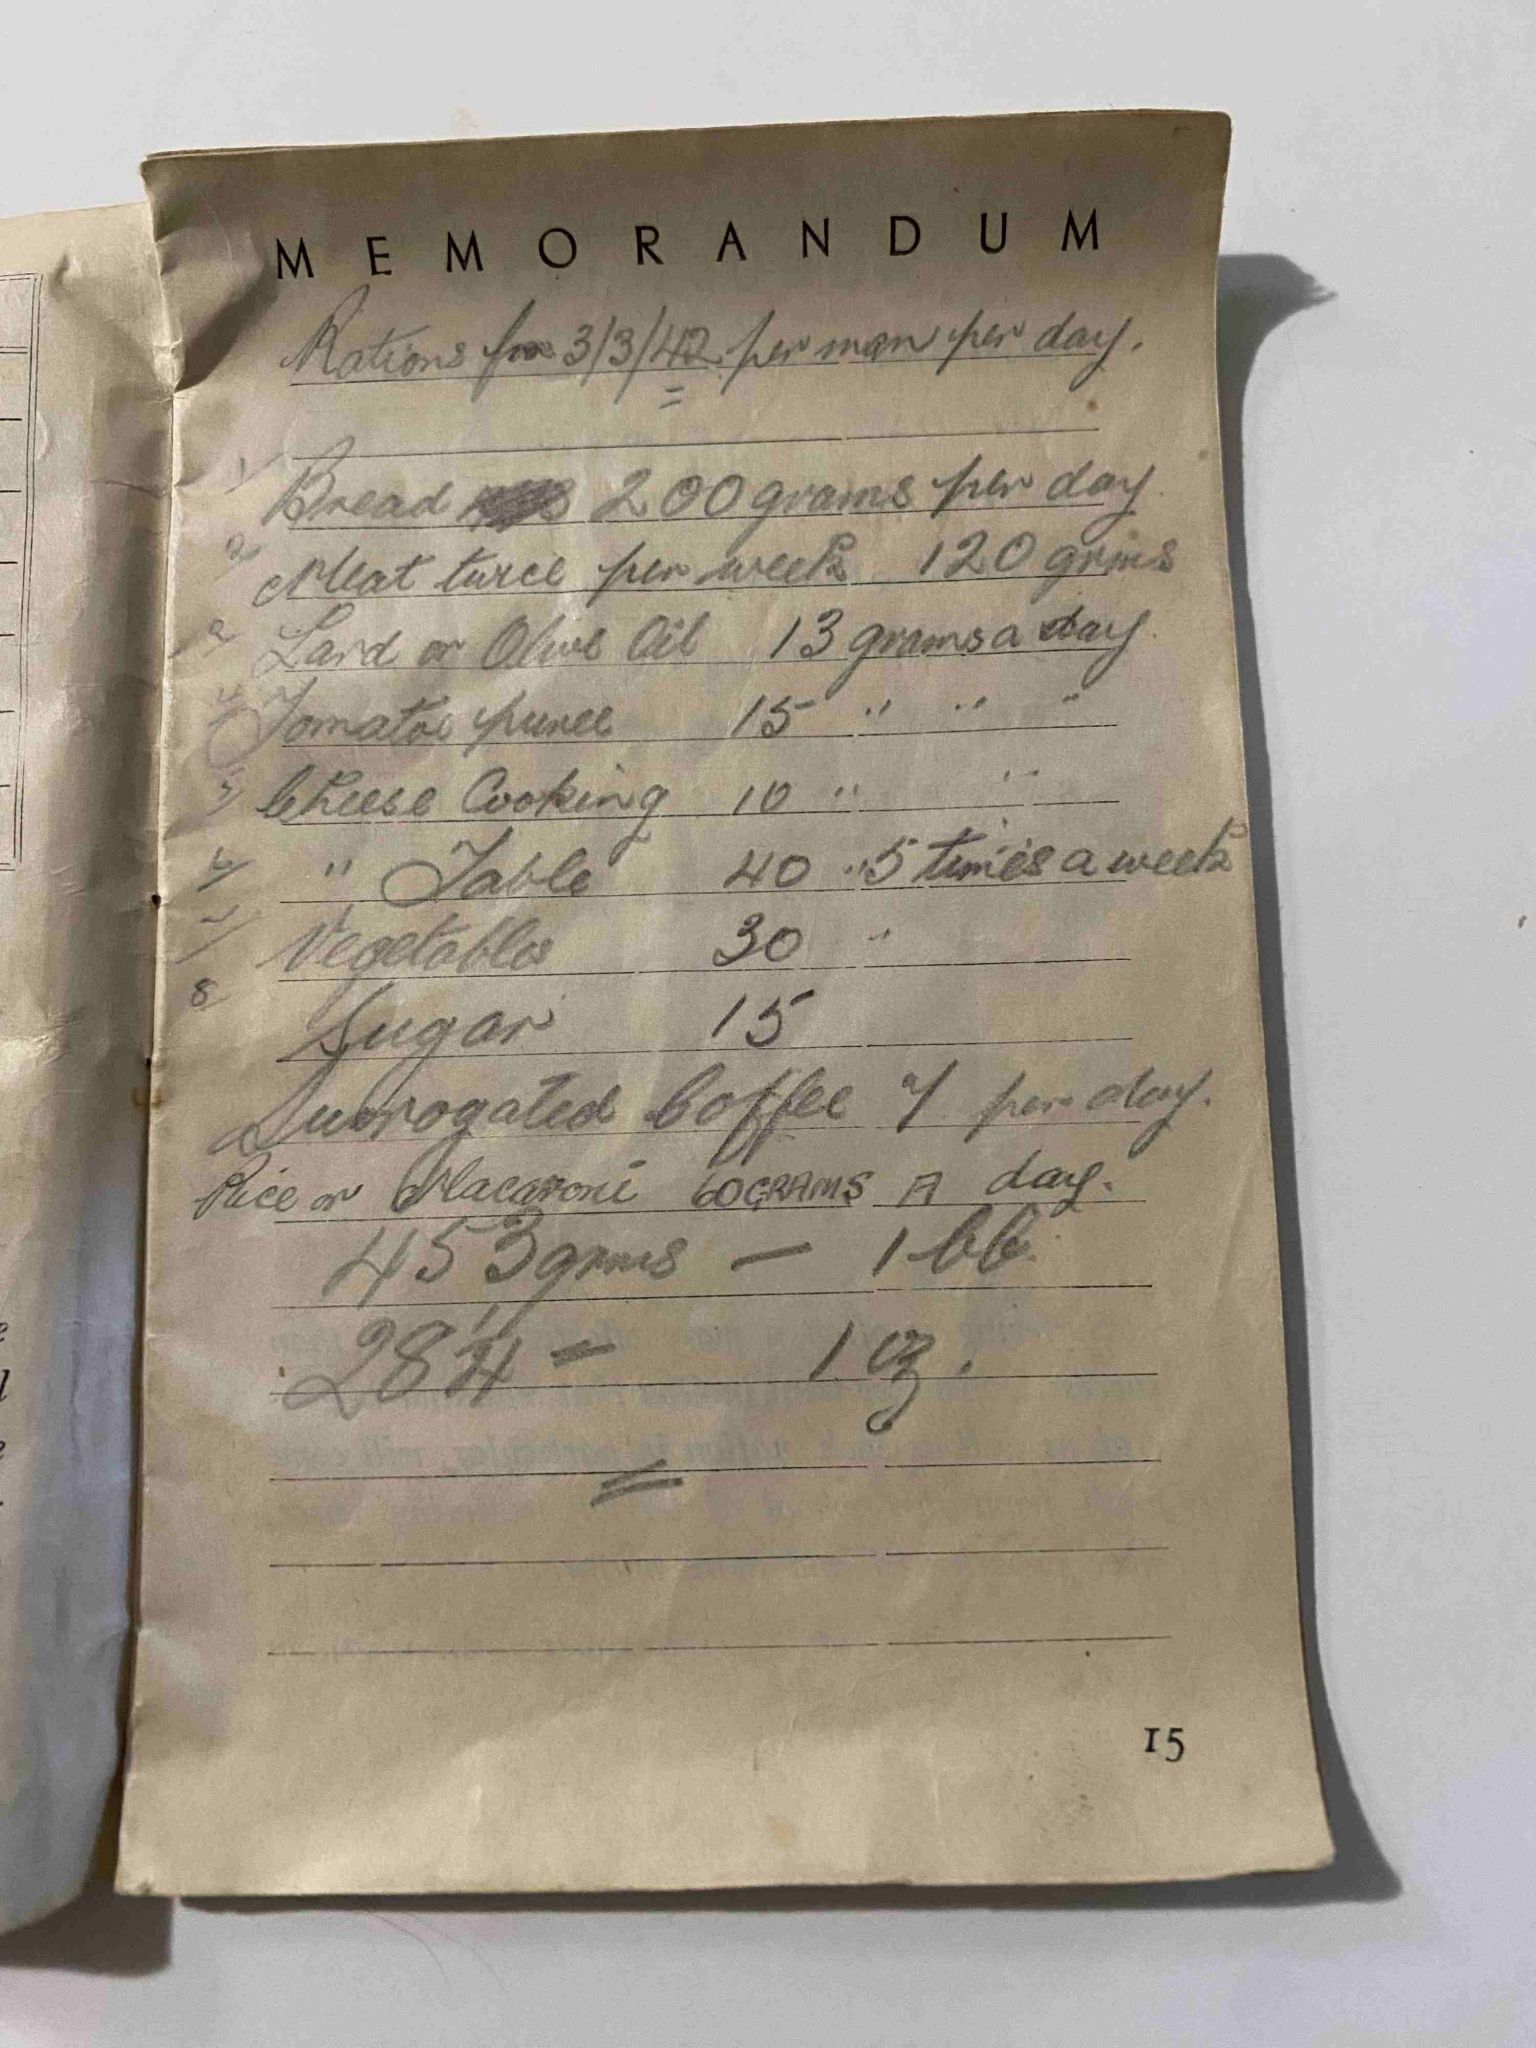 MEMORANDUM
Rations for 3/3/42 per man per day.
1/ Bread 200 grams per day
2/ Meat twice per week 120 grms
3 Lard or Olive Oil 13 grams a day
4/ Tomatoe puree 15 " " "
5/ Cheese Cooking 10 " "
6/ " Table 40 " 5 times a week
7/ Vegetables 30 "
8/ Sugar 15
Surrogated Coffee 7 per day.
Rice or Macaroni 60 GRAMS A day.
453 grms — 1 lb.
28 1/4 = 1 oz.
15